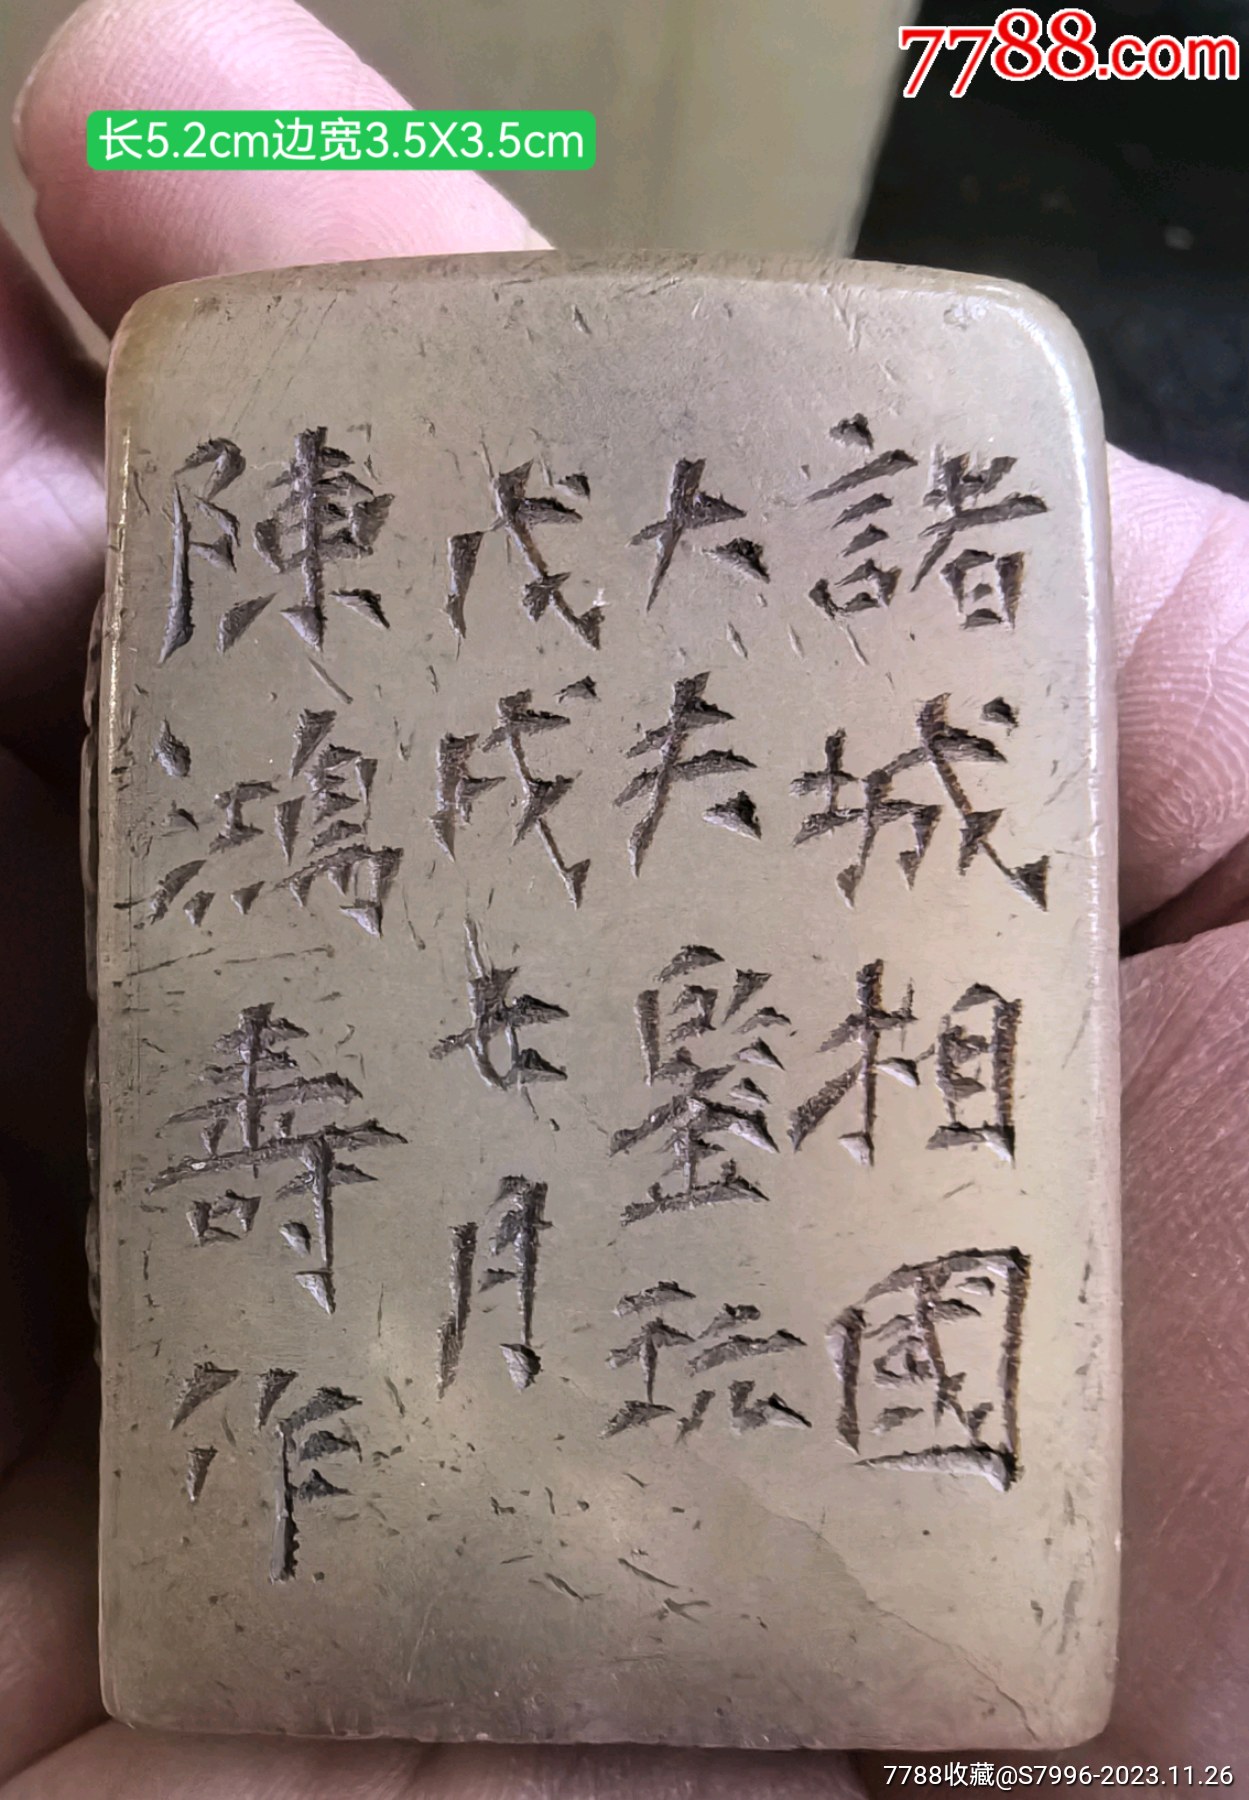 7788.com
长5.2cm边宽3.5X3.5cm
諸城相國
大夫鑒玩
戊戌七月
陳鴻壽作
7788收藏@S7996-2023.11.26